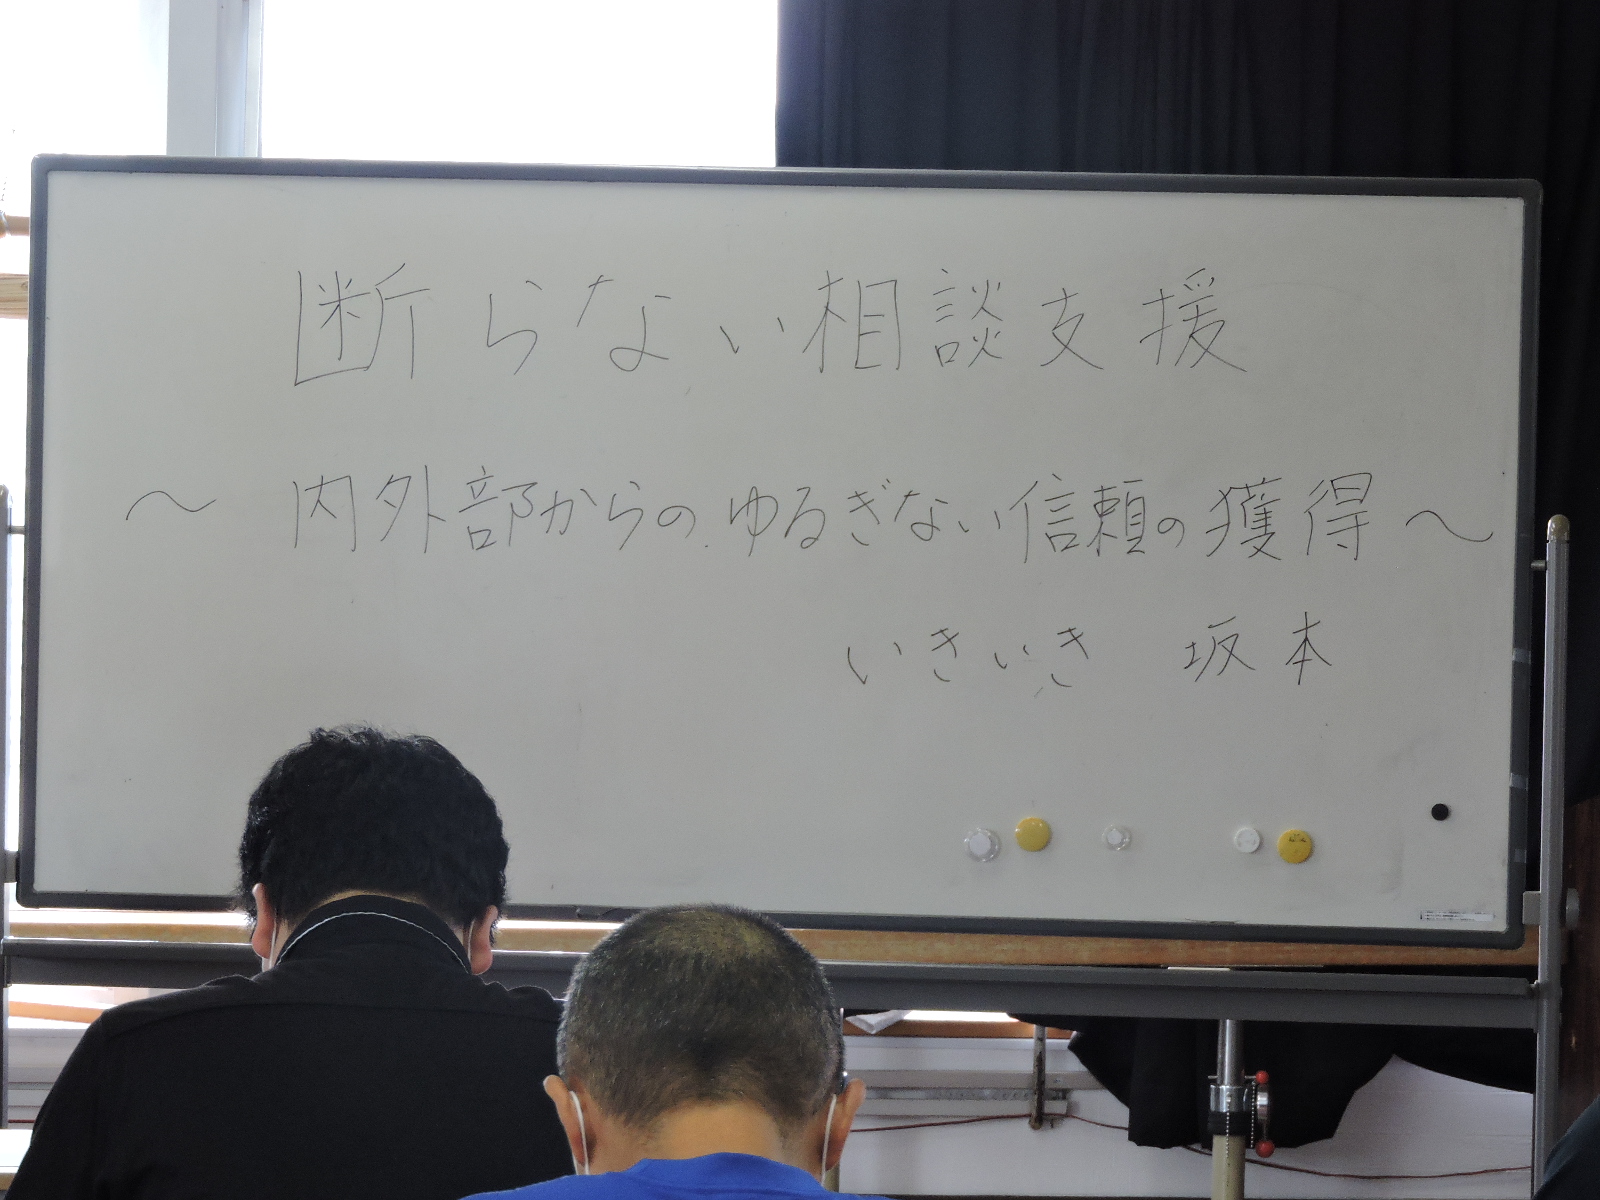 断らない相談支援
～内外部からのゆるぎない信頼の獲得～
いきいき 坂本